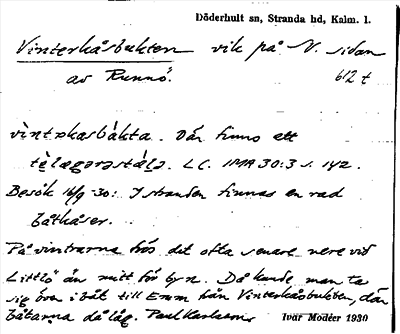 Döderhult sn, Stranda hd, Kalm. l.
Vinterkåsbukten vik på N. sidan
av Runnö. 612 t
Där finns ett
LC. IMA 30:3 s. 142.
Besök 16/9 -30: I stranden finnas en rad
båtkåser.
På vintrarna frös det ofta senare nere vid
Littlö än mitt för byn. Då kunde man ta
sig över i båt till Emm från Vinterkåsbukten, där
båtarna då låg. Paul Karlsson
Ivar Modéer 1930